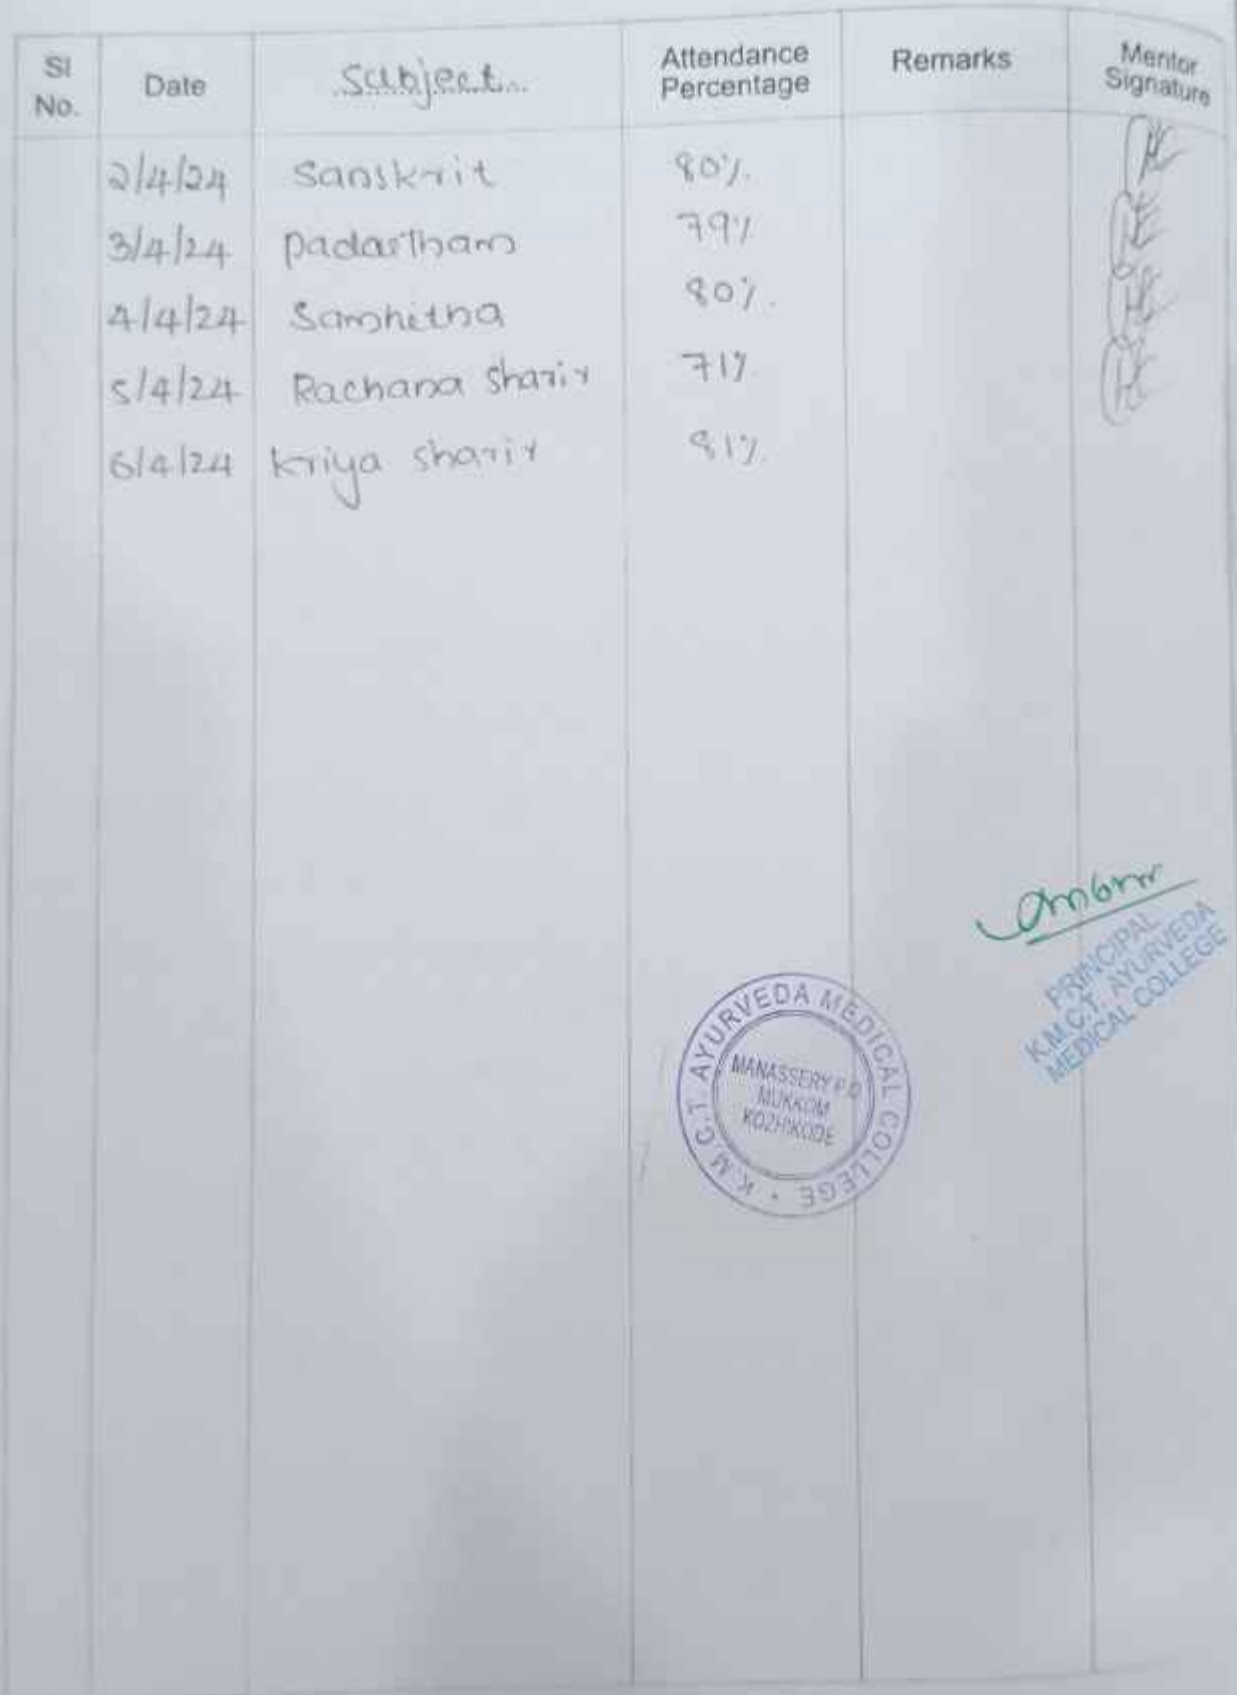 Sl No. Date Subject Attendance Percentage Remarks Mentor Signature
2/4/24 Sanskrit 80%.
3/4/24 Padartham 79%
4/4/24 Samhitha 80%.
5/4/24 Rachana Sharir 71%.
6/4/24 Kriya Sharir 81%.
PRINCIPAL
K.M.C.T. AYURVEDA
MEDICAL COLLEGE
K.M.C.T. AYURVEDA MEDICAL COLLEGE
MANASSERY P.O
MUKKOM
KOZHIKODE